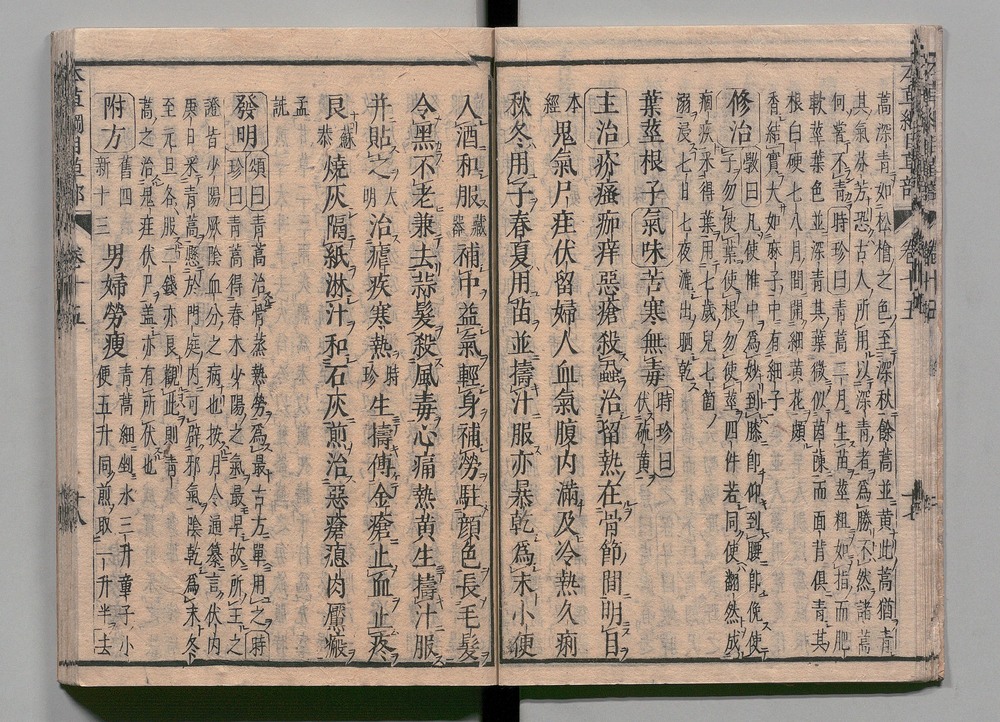 蒿深青如松檜之色至深秋餘蒿並黃此蒿猶青
其氣芬芳恐古人所用以深青者爲勝不然諸蒿
何嘗不青時珍曰青蒿二月生苗莖粗如指而肥
軟莖葉色並深青其葉微似茵蔯而面背俱青其
根白硬七八月間開細黃花頗
香結實大如麻子中有細子
修治 斅曰凡使惟中爲妙到膝卽仰到腰卽俛使
子勿使葉使根勿使莖四件若同使翻然成
痼疾采得葉用七歲兒七箇
溺浸七日七夜漉出晒乾
葉莖根子氣味苦寒無毒 時珍曰
伏硫黃
主治疥瘙痂痒惡瘡殺蝨治留熱在骨節間明目
本經 鬼氣尸疰伏留婦人血氣腹內滿及冷熱久痢
秋冬用子春夏用苗並擣汁服亦暴乾爲末小便
入酒和服 藏器 補中益氣輕身補勞駐顏色長毛髮
令黑不老兼去蒜髮殺風毒心痛熱黃生擣汁服
并貼之 大明 治瘧疾寒熱 時珍 生擣傅金瘡止血止疼
艮 蘇恭 燒灰隔紙淋汁和石灰煎治惡瘡瘜肉黶瘢
孟詵
發明 頌曰青蒿治骨蒸熱勞爲最古方單用之 時
珍曰青蒿得春木少陽之氣最早故所主之
證皆少陽厥陰血分之病也按月令通纂言伏內
庚日采青蒿懸於門庭內可辟邪氣陰乾爲末冬
至元旦各服二錢亦良觀此則青
蒿之治鬼疰伏尸蓋亦有所伏也
附方 舊四
新十三 男婦勞瘦 青蒿細剉水三升童子小
便五升同煎取一升半去